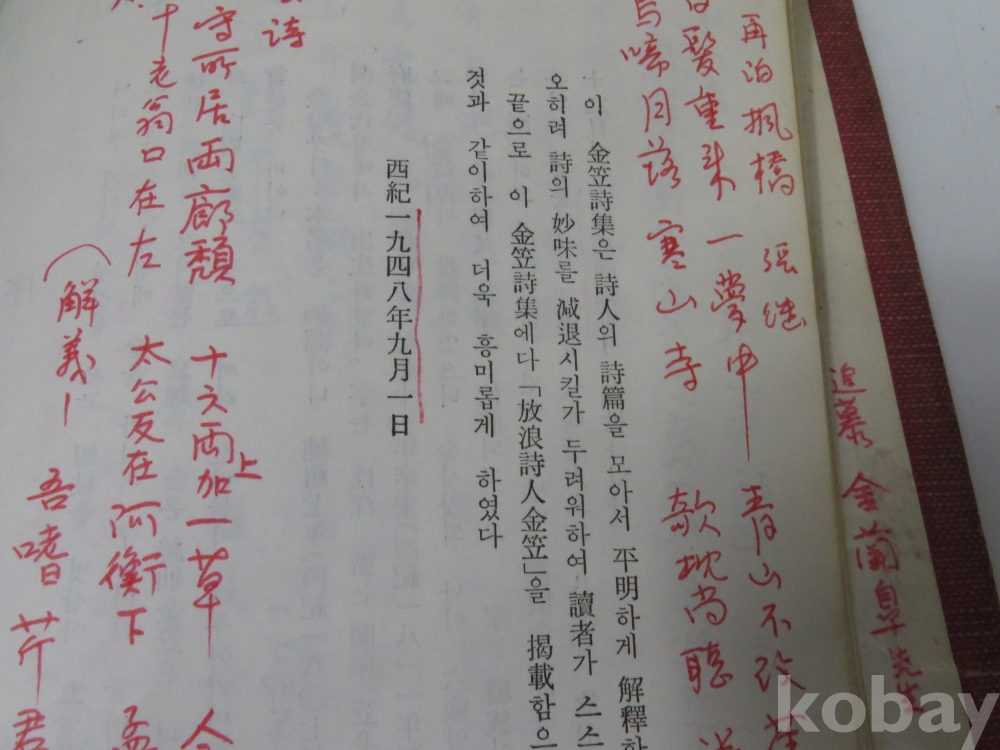 追慕 金蘭皐 先生
再泊楓橋 張継
白髮重來一夢中 青山不改
烏啼月落 寒山寺 欹枕尚聽
이 金笠詩集은 詩人의 詩篇을 모아서 平明하게 解釋하
오히려 詩의 妙味를 減退시킬가 두려워하여 讀者가 스스
끝으로 이 金笠詩集에다「放浪詩人金笠」을 揭載함으
것과 같이하여 더욱 흥미롭게 하였다
西紀一九四八年九月一日
詩
守所居両廊頹 十六両加一草 上
十老翁口在左 太公友在阿衡下 孟
(解義 吾嗜芹君
kobay